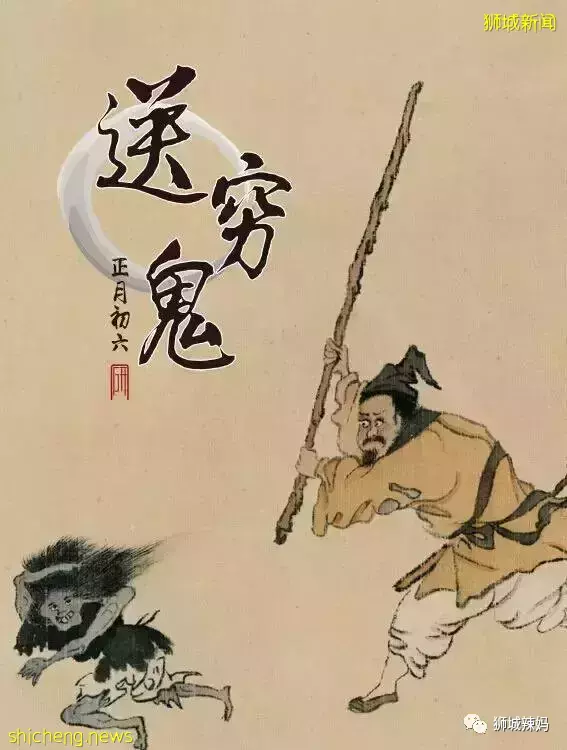 狮城新闻
送穷鬼
正月初六
shicheng.news
狮城辣妈